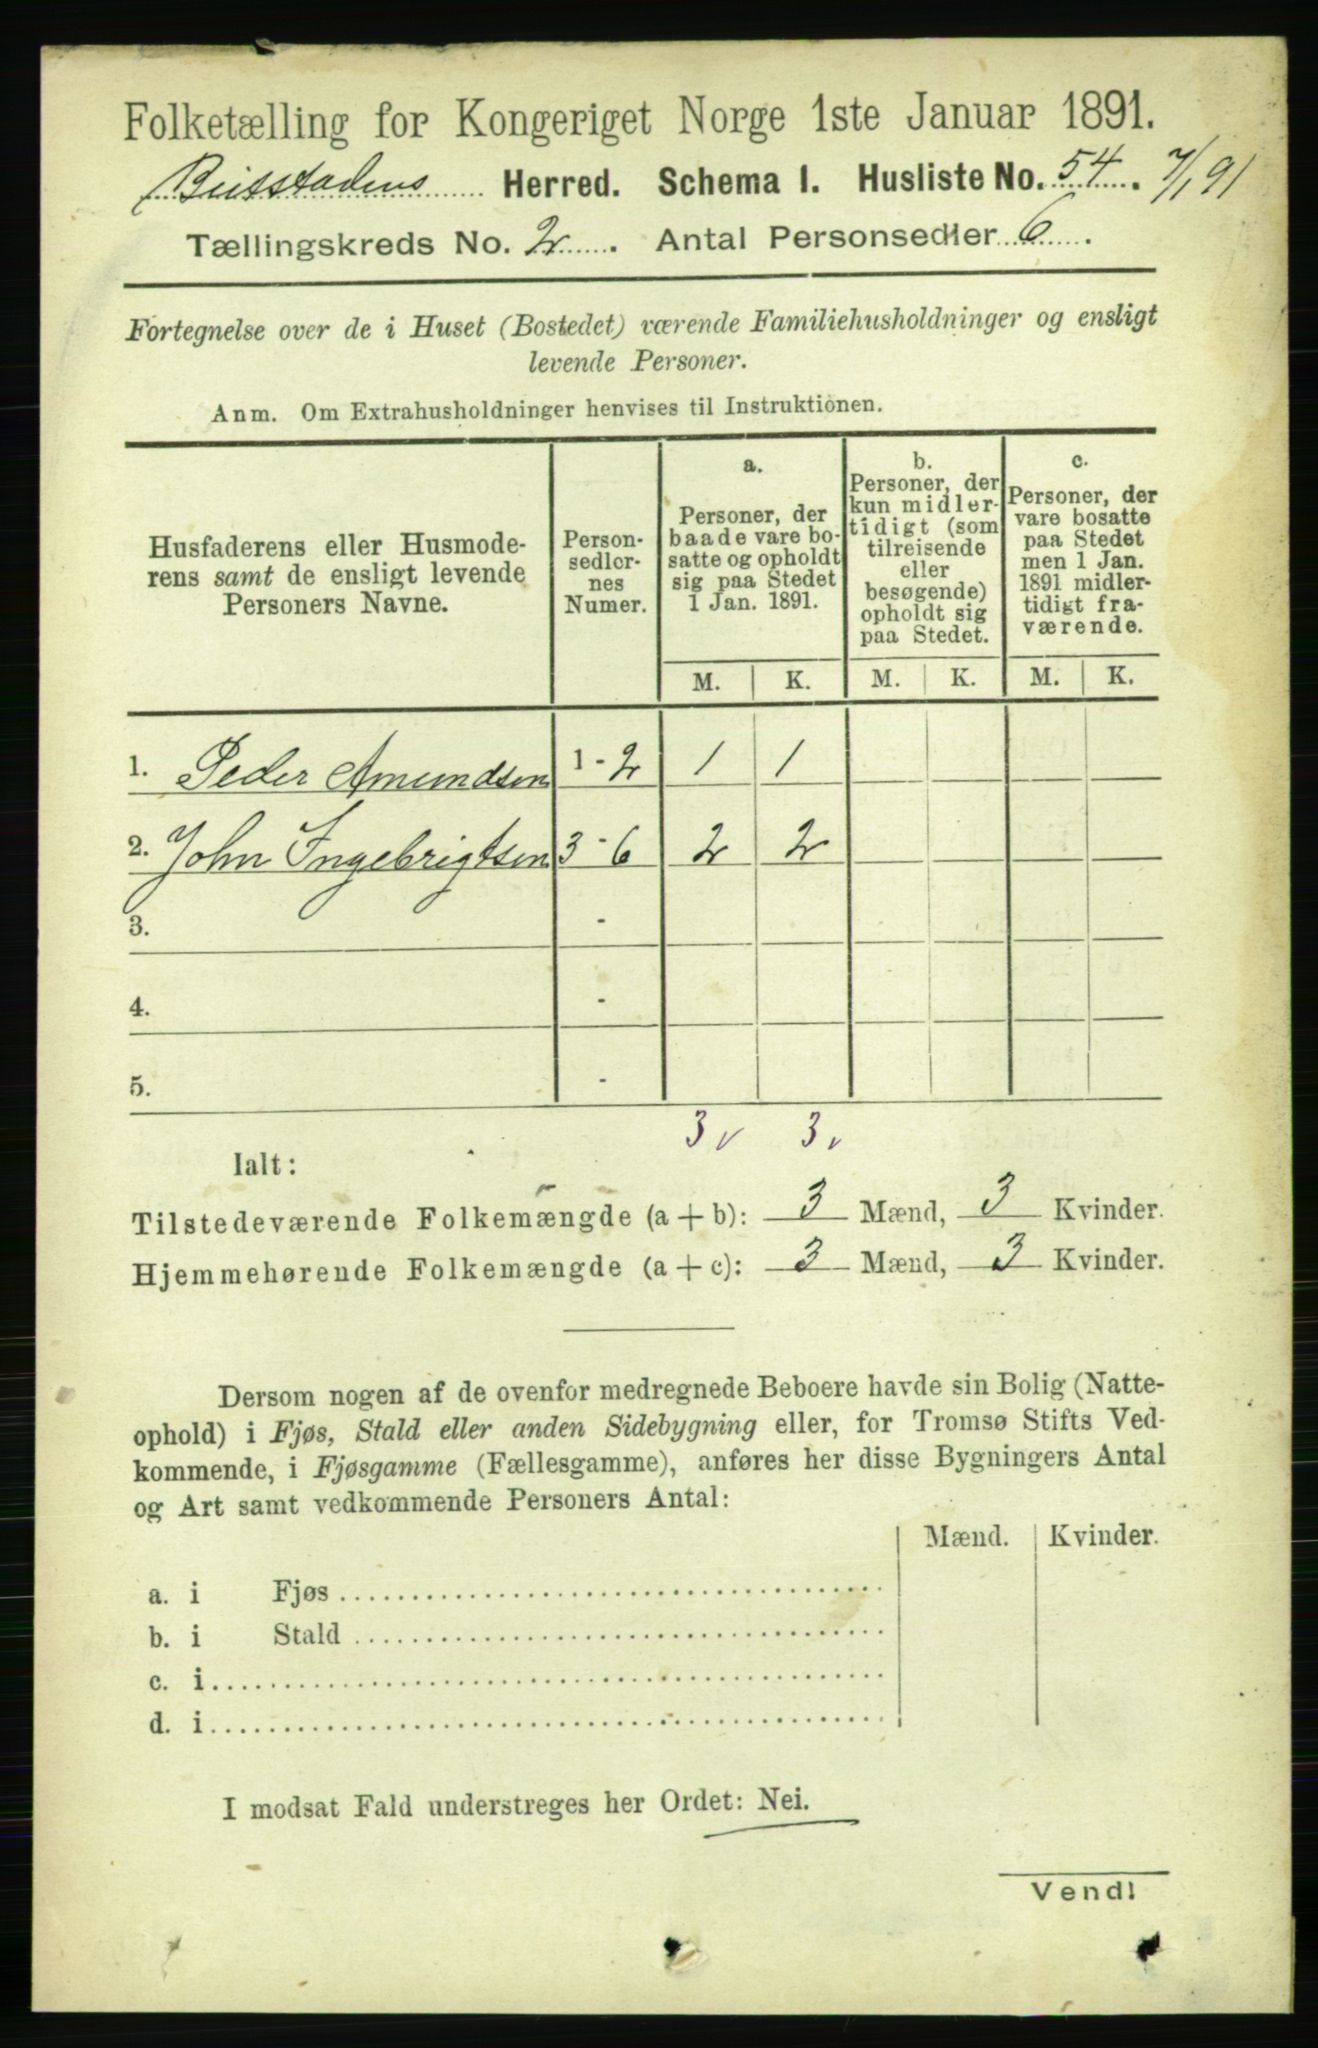 Folketælling for Kongeriget Norge 1ste Januar 1891.
Beitstadens Herred. Schema I. Husliste No. 54. 7/1 91
Tællingskreds No. 2. Antal Personsedler 6.
Fortegnelse over de i Huset (Bostedet) værende Familiehusholdninger og ensligt
levende Personer.
Anm. Om Extrahusholdninger henvises til Instruktionen.
Husfaderens eller Husmode-
rens samt de ensligt levende
Personers Navne.
Person-
sedler-
nes
Numer.
a.
Personer, der
baade vare bo-
satte og opholdt
sig paa Stedet
1 Jan. 1891.
b.
Personer, der
kun midler-
tidigt (som
tilreisende
eller
besøgende)
opholdt sig
paa Stedet.
c.
Personer, der
vare bosatte
paa Stedet
men 1 Jan.
1891 midler-
tidigt fra-
værende.
M. K. M. K. M. K.
1. Peder Amundsen 1 - 2 1 1
2. John Ingebrigtsen 3 - 6 2 2
3. -
4. -
5. -
3 v 3 v
Ialt:
Tilstedeværende Folkemængde (a + b): 3 Mænd, 3 Kvinder.
Hjemmehørende Folkemængde (a + c): 3 Mænd, 3 Kvinder.
Dersom nogen af de ovenfor medregnede Beboere havde sin Bolig (Natte-
ophold) i Fjøs, Stald eller anden Sidebygning eller, for Tromsø Stifts Ved-
kommende, i Fjøsgamme (Fællesgamme), anføres her disse Bygningers Antal
og Art samt vedkommende Personers Antal:
Mænd. Kvinder.
a. i Fjøs
b. i Stald
c. i
d. i
I modsat Fald understreges her Ordet: Nei.
Vend!